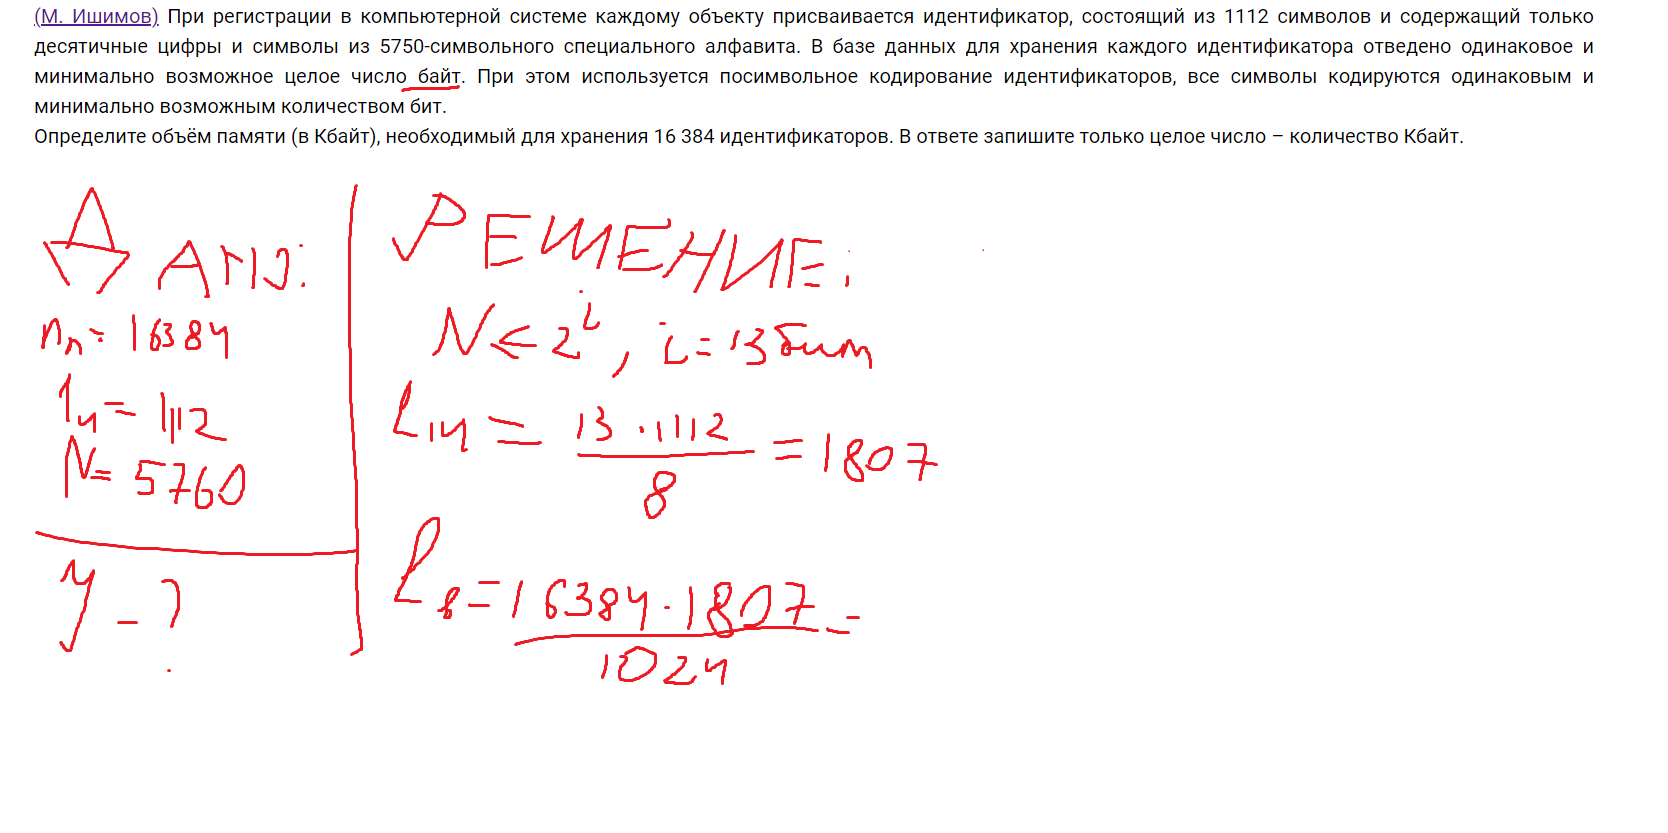 (М. Ишимов) При регистрации в компьютерной системе каждому объекту присваивается идентификатор, состоящий из 1112 символов и содержащий только
десятичные цифры и символы из 5750-символьного специального алфавита. В базе данных для хранения каждого идентификатора отведено одинаковое и
минимально возможное целое число байт. При этом используется посимвольное кодирование идентификаторов, все символы кодируются одинаковым и
минимально возможным количеством бит.
Определите объём памяти (в Кбайт), необходимый для хранения 16 384 идентификаторов. В ответе запишите только целое число – количество Кбайт.
Дано:
nп = 16384
1ч = 1112
N = 5760
У - ?
РЕШЕНИЕ:
N <= 2^i, i = 13 бит
L1ч = 13 · 1112 / 8 = 1807
Lв = 16384 · 1807 / 1024 =